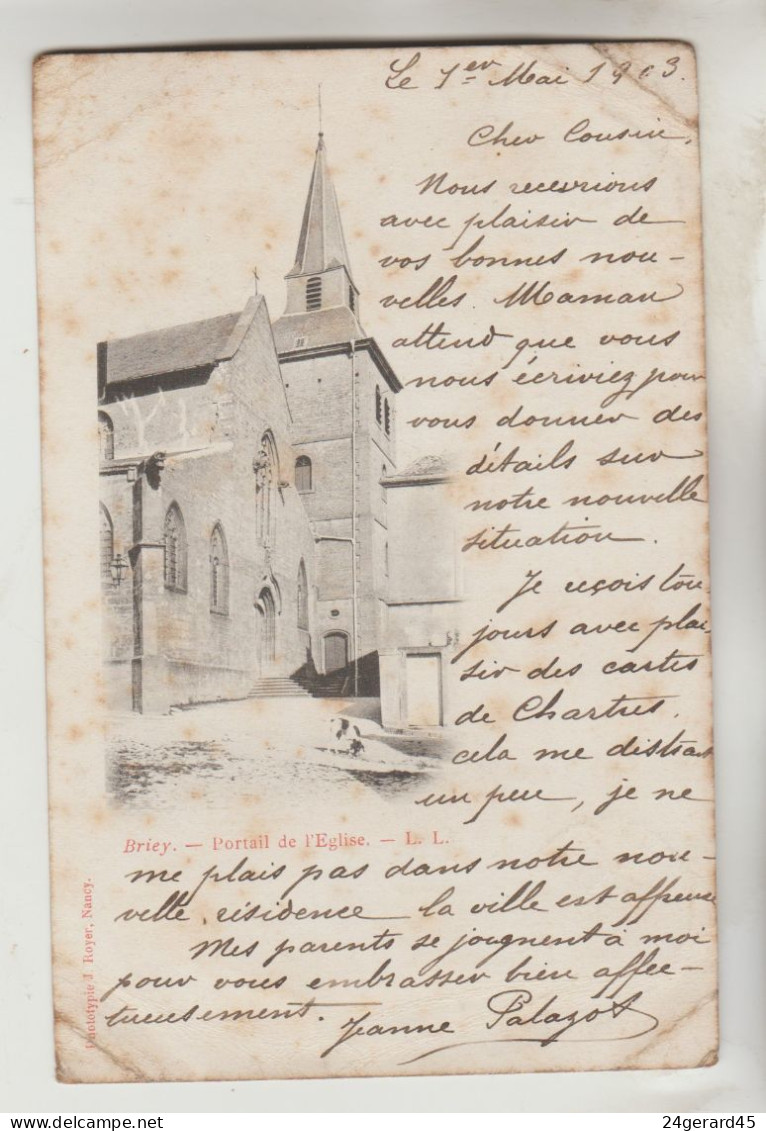 Le 1er Mai 1903.
Cher Cousin,
Nous recevrions
avec plaisir de
vos bonnes nou-
velles. Maman
attend que vous
nous écriviez pour
vous donner des
détails sur
notre nouvelle
situation.
Je reçois tou-
jours avec plai-
sir des cartes
de Chartres,
cela me distrait
un peu, je ne
Briey. — Portail de l'Eglise. — L. L.
me plais pas dans notre nou-
velle résidence la ville est affreuse
Mes parents se joignent à moi
pour vous embrasser bien affec-
tueusement.
Jeanne Palazot
Phototypie J. Royer, Nancy.
24gerard45
www.delcampe.net